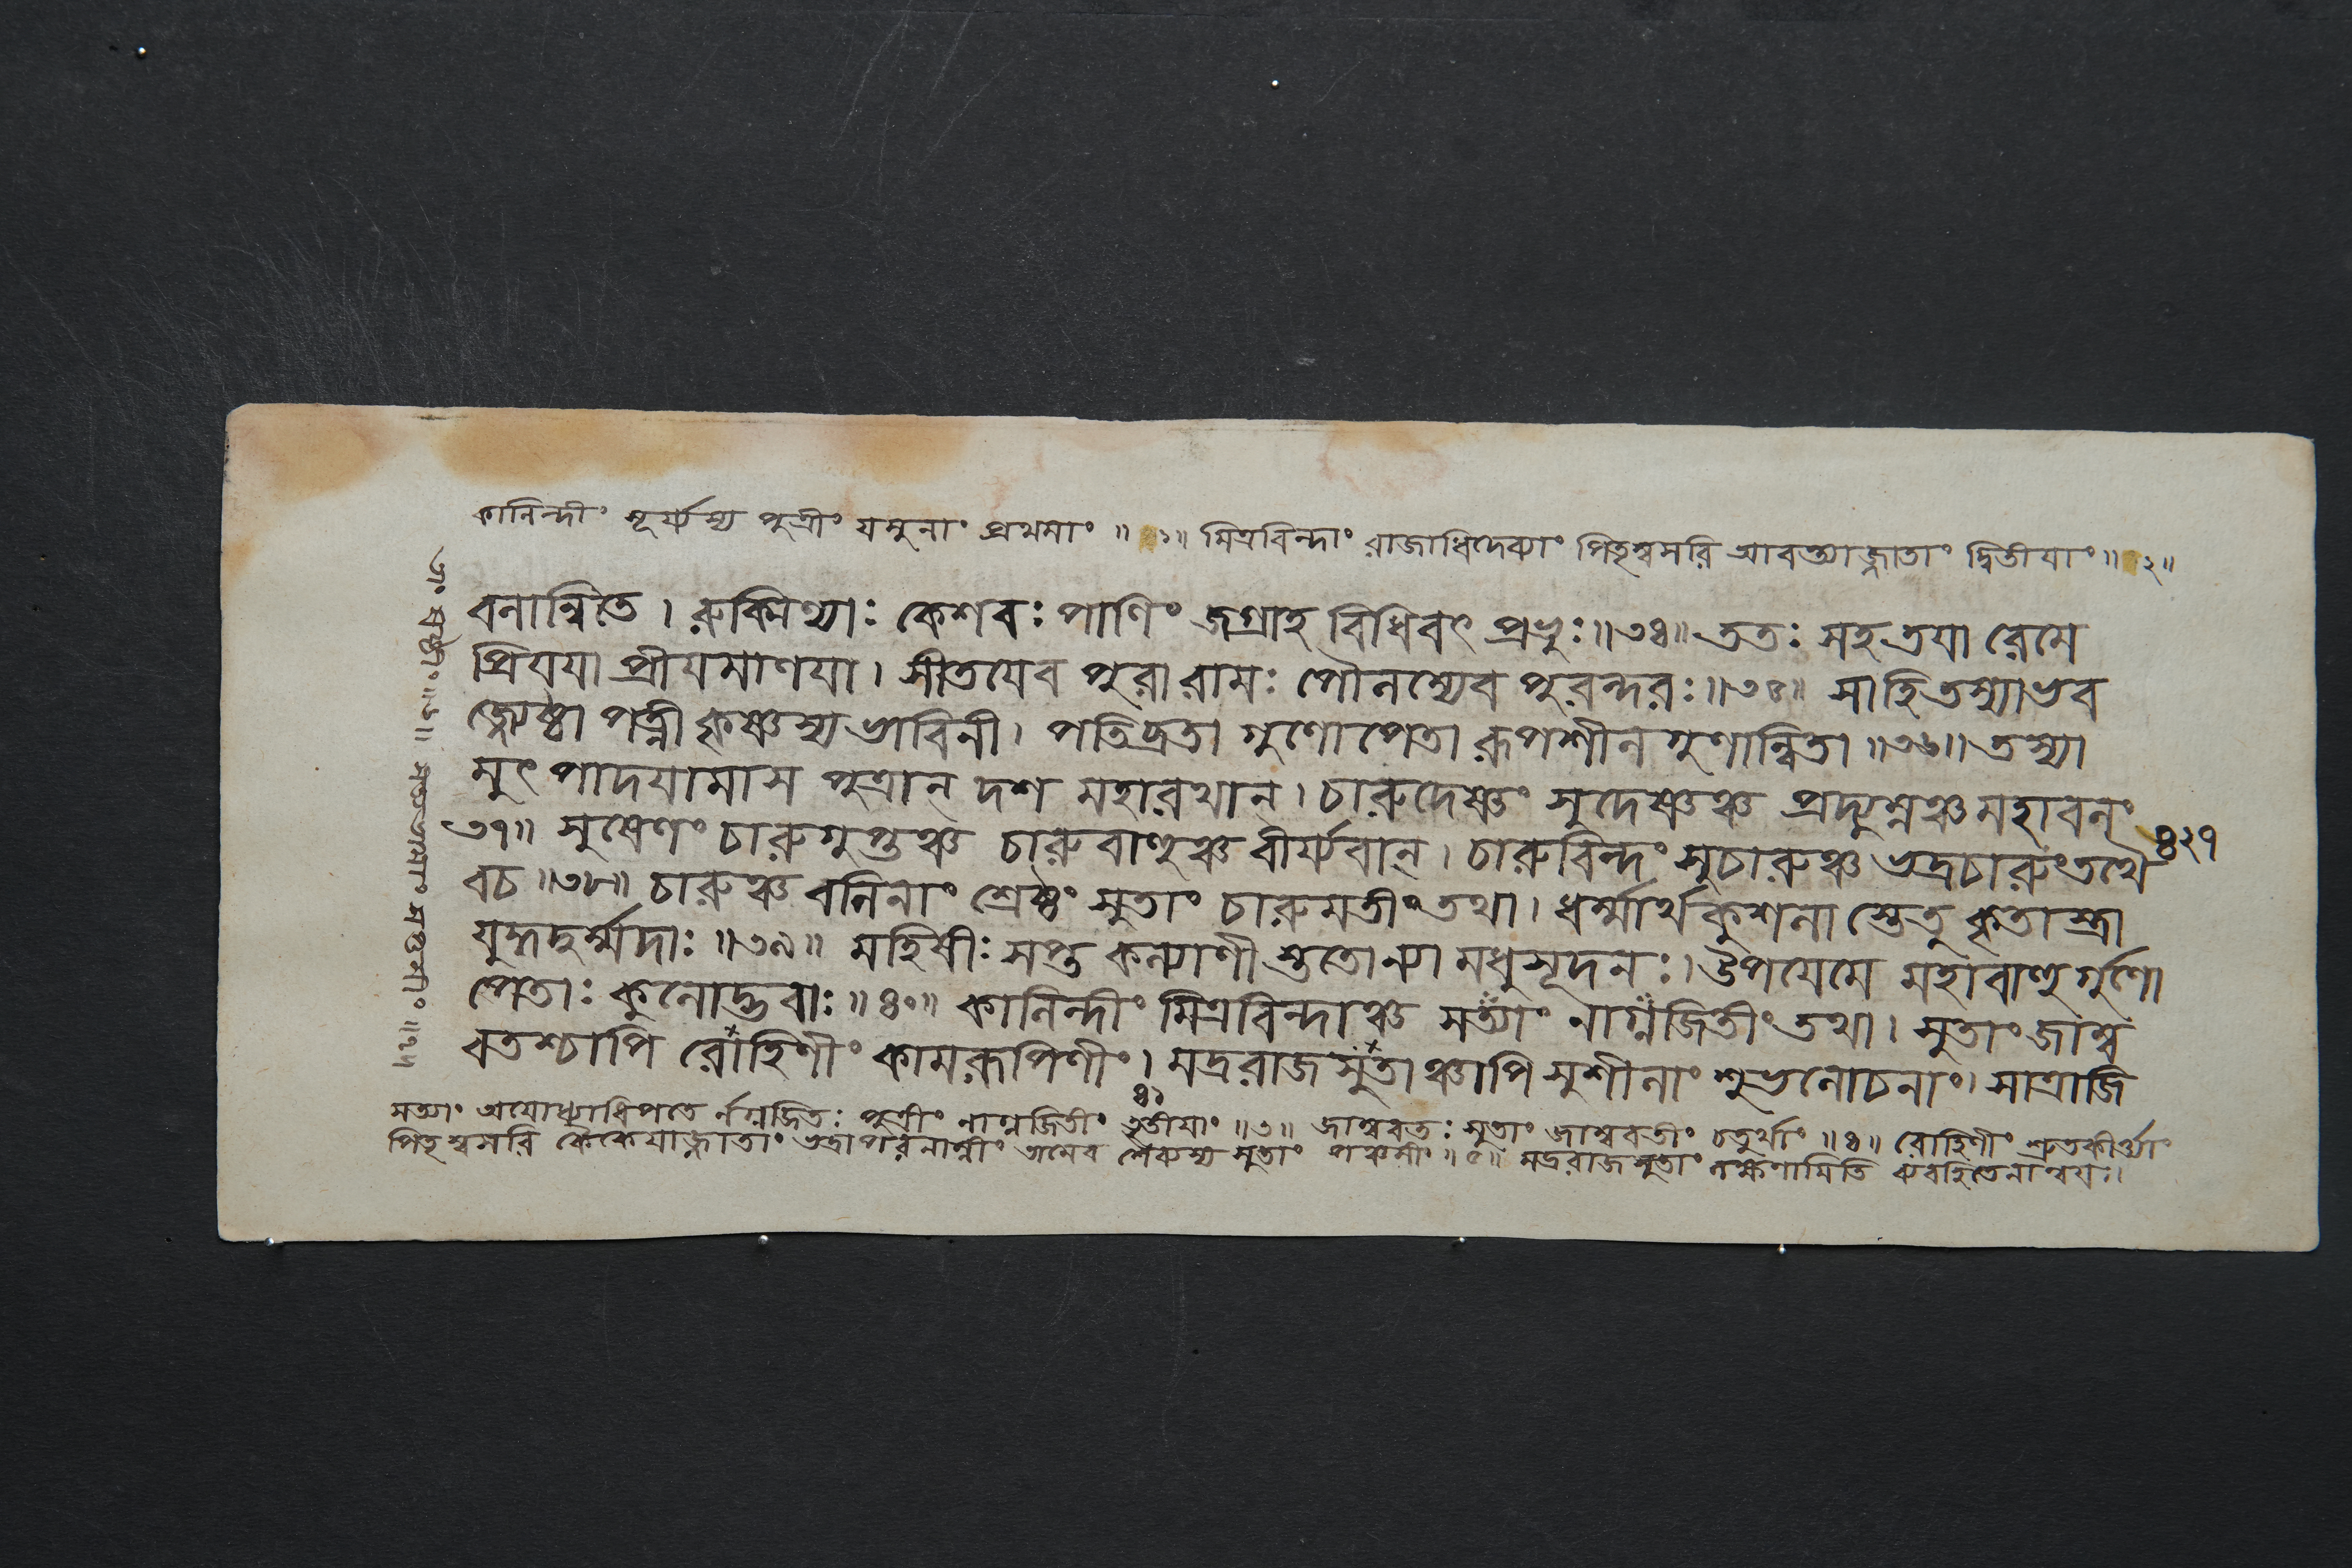 কালিন্দীং সূর্য্যস্য পুত্রীং যমুনাং প্রথমাং ॥ ১॥ মিত্রবিন্দাং রাজাধিদেব্যাং পিতৃস্বসরি আবন্ত্যাজ্জাতাং দ্বিতীয়াং ॥ ২॥
বলান্বিতে । রুক্মিণ্যাঃ কেশবঃ পাণিং জগ্রাহ বিধিবৎ প্রভুঃ ॥৩৪॥ ততঃ সহ তয়া রেমে
প্রিয়য়া প্রীয়মাণয়া । সীতয়েব পুরা রামঃ পৌলম্যেব পুরন্দরঃ ॥৩৫॥ সা হি তস্যাভব
জ্জ্যেষ্ঠা পত্নী কৃষ্ণস্য ভাবিনী । পতিব্রতা গুণোপেতা রূপশীলগুণান্বিতা ॥৩৬॥ তস্যা
মুৎপাদয়ামাস পুত্রান্ দশ মহারথান্ । চারুদেষ্ণং সুদেষ্ণঞ্চ প্রদ্যুম্নঞ্চ মহাবলং
৩৭॥ সুষেণং চারুগুপ্তঞ্চ চারুবাহুঞ্চ বীর্য্যবান্ । চারুবিন্দং সুচারুঞ্চ ভদ্রচারুং তথৈ
৪২৭
বচ ॥৩৮॥ চারুঞ্চ বলিনাং শ্রেষ্ঠং সুতাং চারুমতীং তথা । ধর্ম্মার্থকুশলা স্তেতু কৃতাস্ত্রা
যুদ্ধদুর্ম্মদাঃ ॥৩৯॥ মহিষীঃ সপ্ত কল্যাণী স্ততোন্যা মধুসূদনঃ । উপযেমে মহাবাহু র্গুণো
পেতাঃ কুলোদ্ভবাঃ ॥৪০॥ কালিন্দীং মিত্রবিন্দাঞ্চ সত্যাং নাগ্নজিতীং তথা । সুতাং জাম্ব
বতশ্চাপি রোহিণীং কামরূপিণীং । মদ্ররাজসুতাঞ্চাপি সুশীলাং শুভলোচনাং । সাত্রাজি
৪১
সত্যাং অযোধ্যাধিপতে র্নগ্নজিতঃ পুত্রীং নাগ্নজিতীং তৃতীয়াং ॥৩॥ জাম্ববতঃ সুতাং জাম্ববতীং চতুর্থাং ॥৪॥ রোহিণীং শ্রুতকীর্ত্ত্যাং
পিতৃস্বসরি কৈকেয়াজ্জাতাং ভদ্রাপরনাম্নীং সুতাং পঞ্চমীং ॥৫॥ মদ্ররাজসুতাং লক্ষ্মণামিতি ব্যবহিতেনান্বয়ঃ।
তাং ষষ্ঠীং ॥৬॥ সত্যভামাং সপ্তমীং ॥৭॥